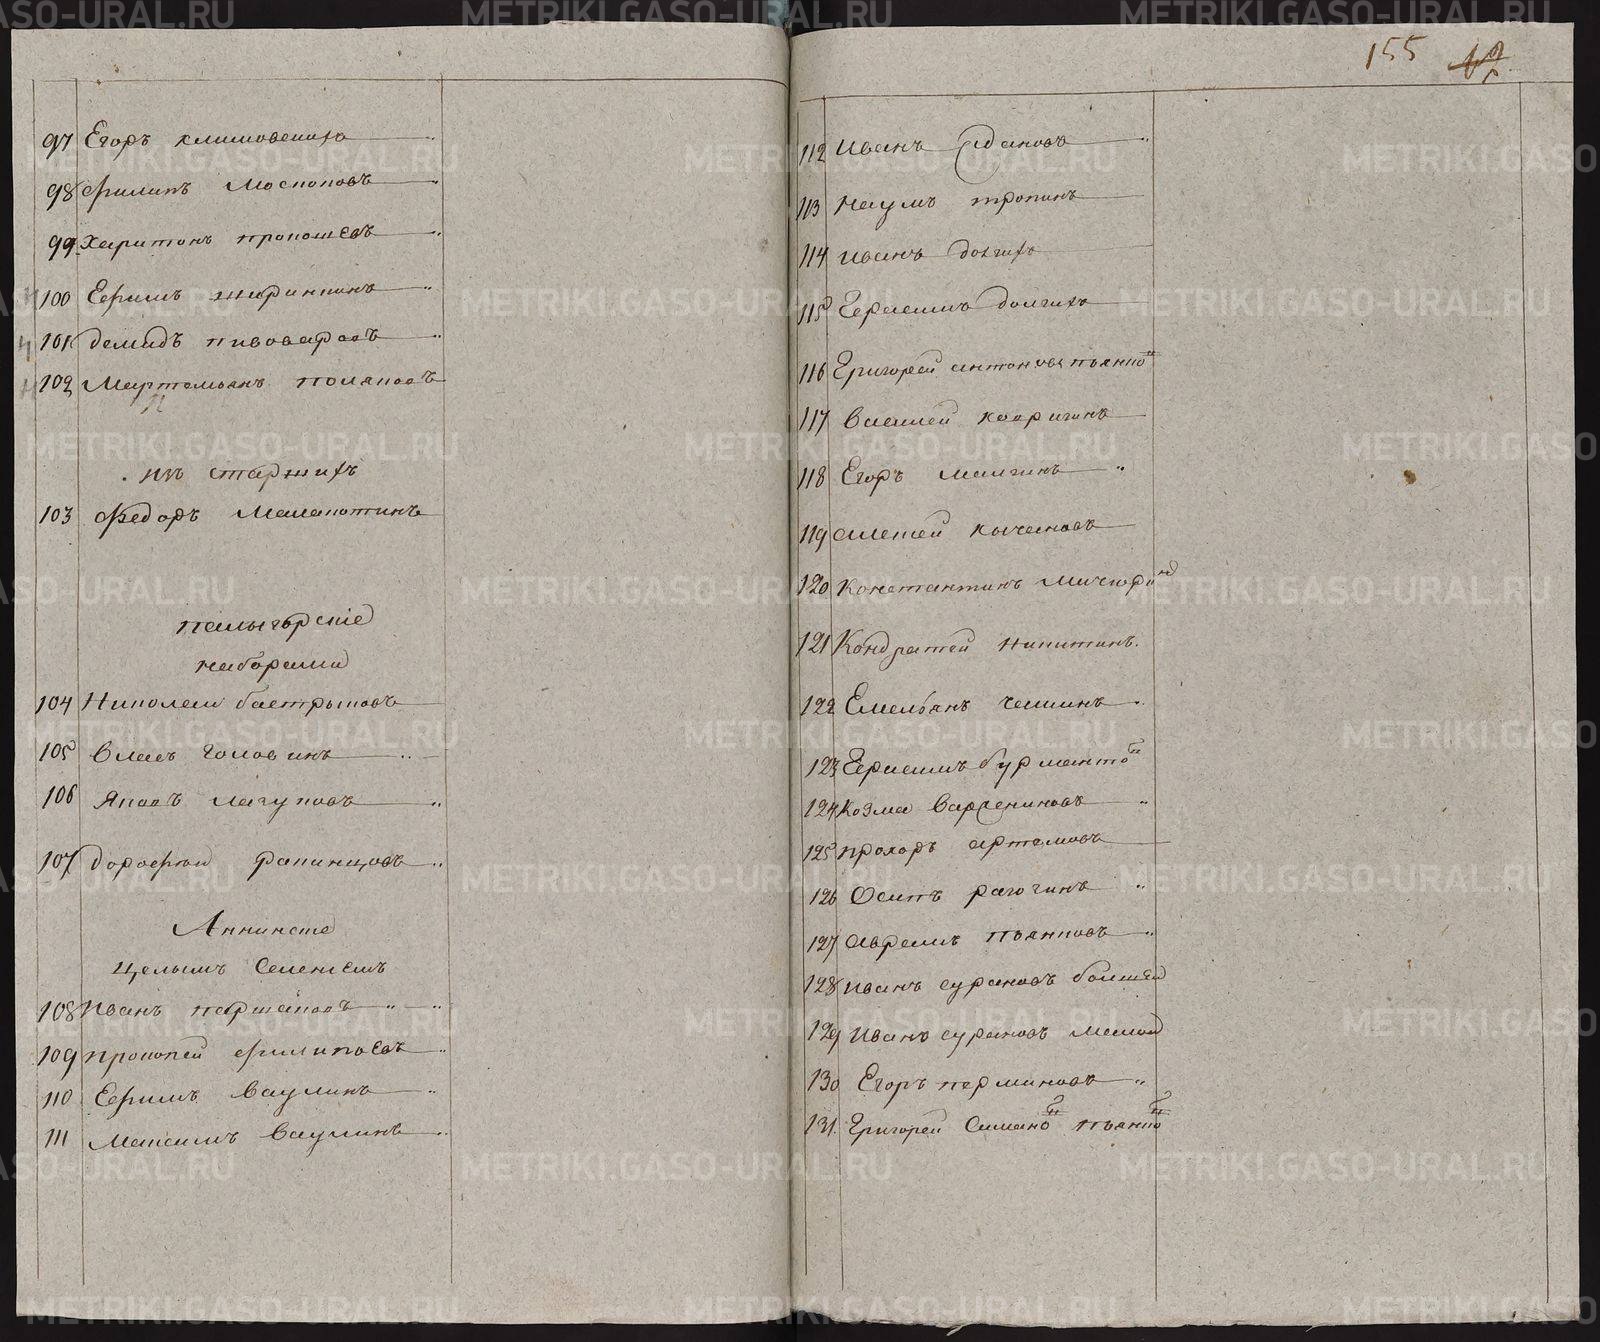 97 Егоръ климовскихъ
98 Филипъ Москоповъ
99 Харитонъ прокошевъ
100 Ефимъ
101 демидъ пивоваровъ
102 Мартемьянъ поляковъ
старшихъ
103 Федоръ Малакотинъ
наборами
104 Николаи бастрыковъ
105 власъ головинъ
106 Яковъ лагуновъ
107 дорофеи
Аннинское
Целымъ Селениемъ
108 Иванъ паршаковъ
109 прокопеи Филиповъ
110 Ефимъ ваулинъ
111 Максимъ ваулинъ
155
112 Иванъ
113 Наумъ тропинъ
114 Иванъ долгихъ
115 Герасимъ долгихъ
116 Григореи антоновъ пьянко
117 василеи ковригинъ
118 Егоръ малгинъ
119 Алексеи
120 Константинъ Мичюри
121 Кондратеи Никитинъ.
122 Емельянъ чашинъ
123 Герасимъ бурманто
124 Козма варкениновъ
125 прохоръ артемовъ
126 Осипъ рагозинъ
127 аврамъ пьянковъ
128 Иванъ сурановъ болшеи
129 Иванъ сурановъ малои
130 Егоръ перминовъ
131. Григореи Симано пьянко
METRIKI.GASO-URAL.RU